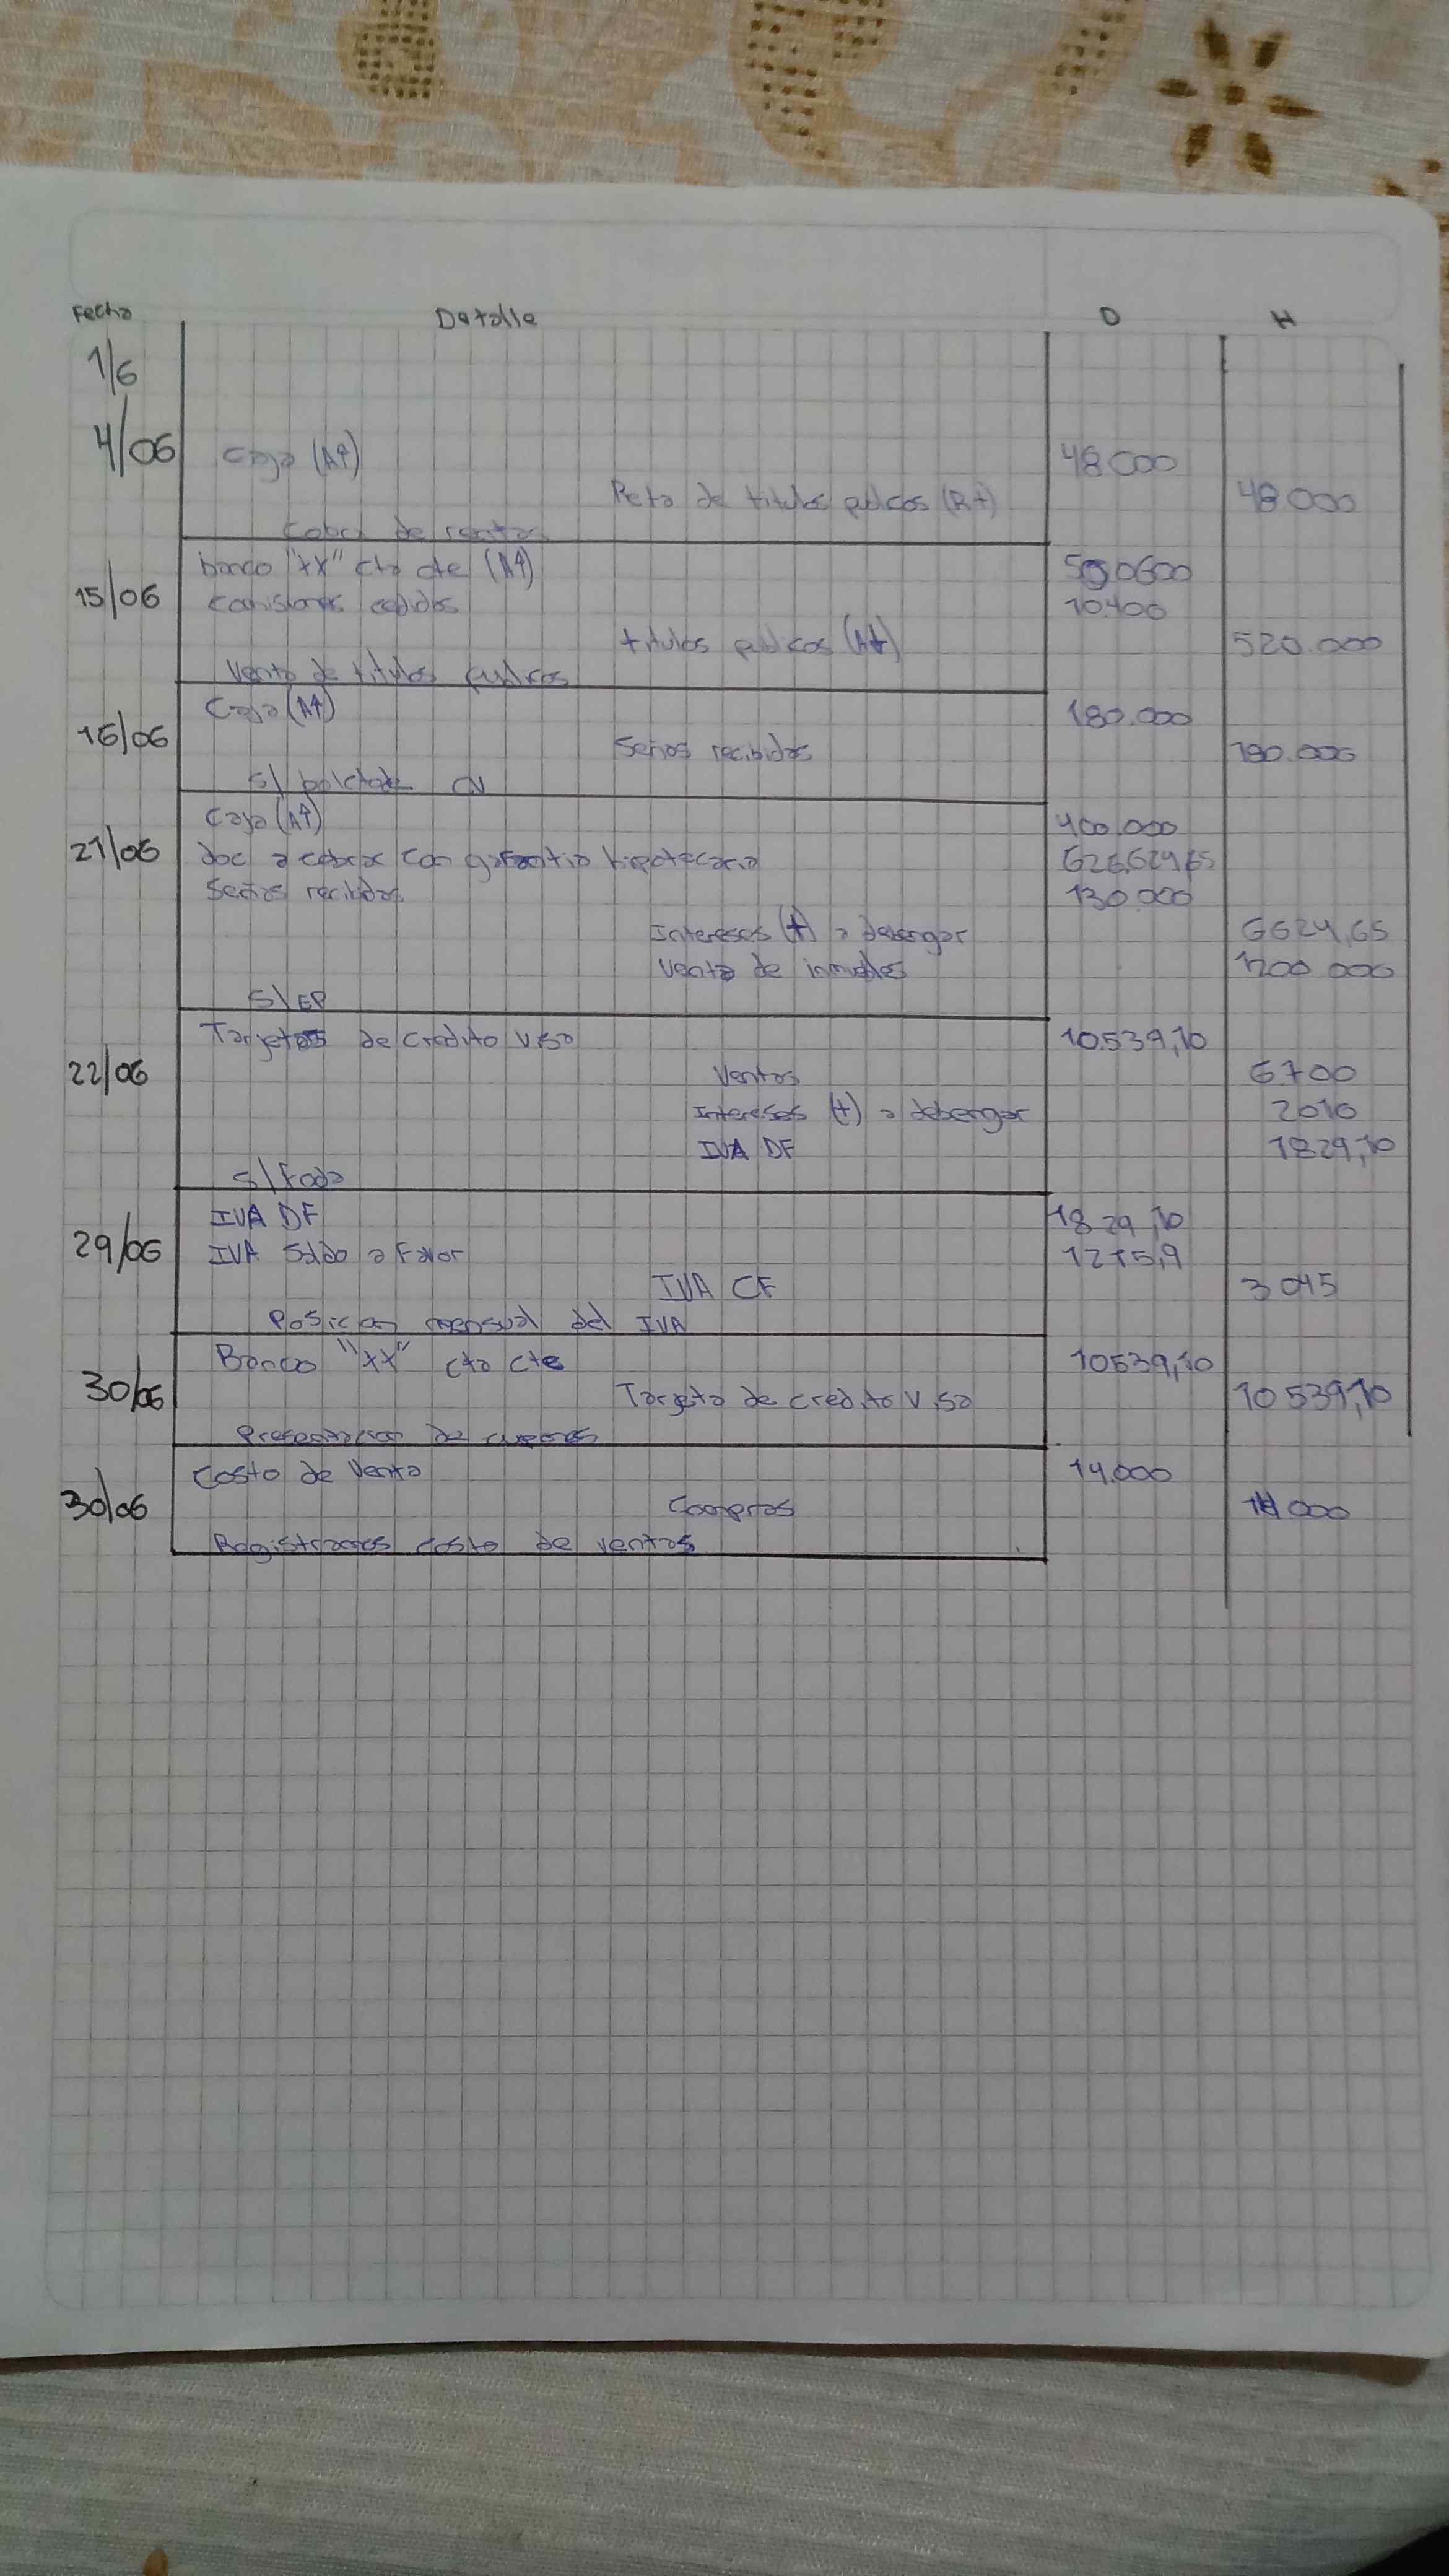 Fecha Detalle D H
1/6
4/06 Caja (A↑) 48000
Reta de titulos publicos (R+) 48000
Cobro de renta
banco "XX" cta cte (A↑)
15/06 comisiones cedidas 10.400
titulos publicos (A↓) 520.000
Venta de titulos publicos
Caja (A↑) 180.000
16/06 Señas recibidas
S/ boleto CV
Caja (A↑) 400.000
21/06 doc a cobrar con garantia hipotecaria 626.624,65
Señas recibidas
Intereses (+) a debengar 6624,65
Venta de inmuebles 1200 000
S/EP
Tarjetas de credito Visa 10.539,10
22/06 Ventas 6700
Intereses (+) a debengar 2010
IVA DF 1829,10
S/Fada
IVA DF 1829,10
29/06 IVA Saldo a Favor 1215,9
IVA CF 3045
Posicion mensual del IVA
Banco "XX" cta cte 10539,10
30/06 Tarjeta de credito Visa 10539,10
Presentacion de cupones
Costo de Venta 14.000
30/06 Compras 14000
Registramos costo de ventas